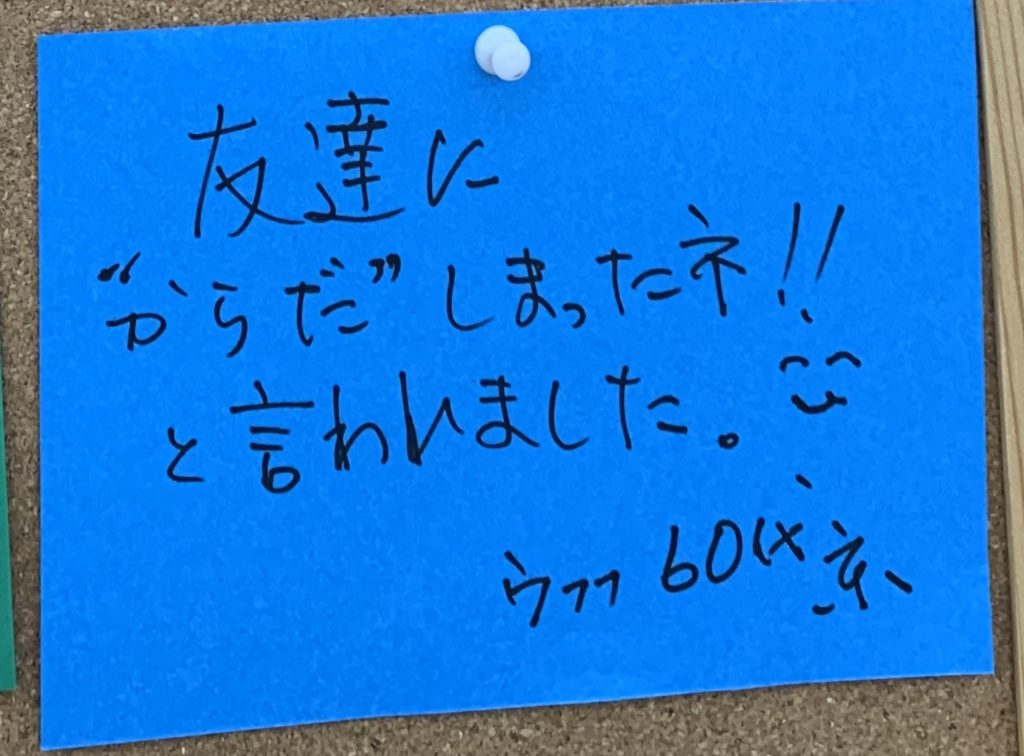 友達に
“からだ”しまったネ!!
と言われました。
ウフフ 60代